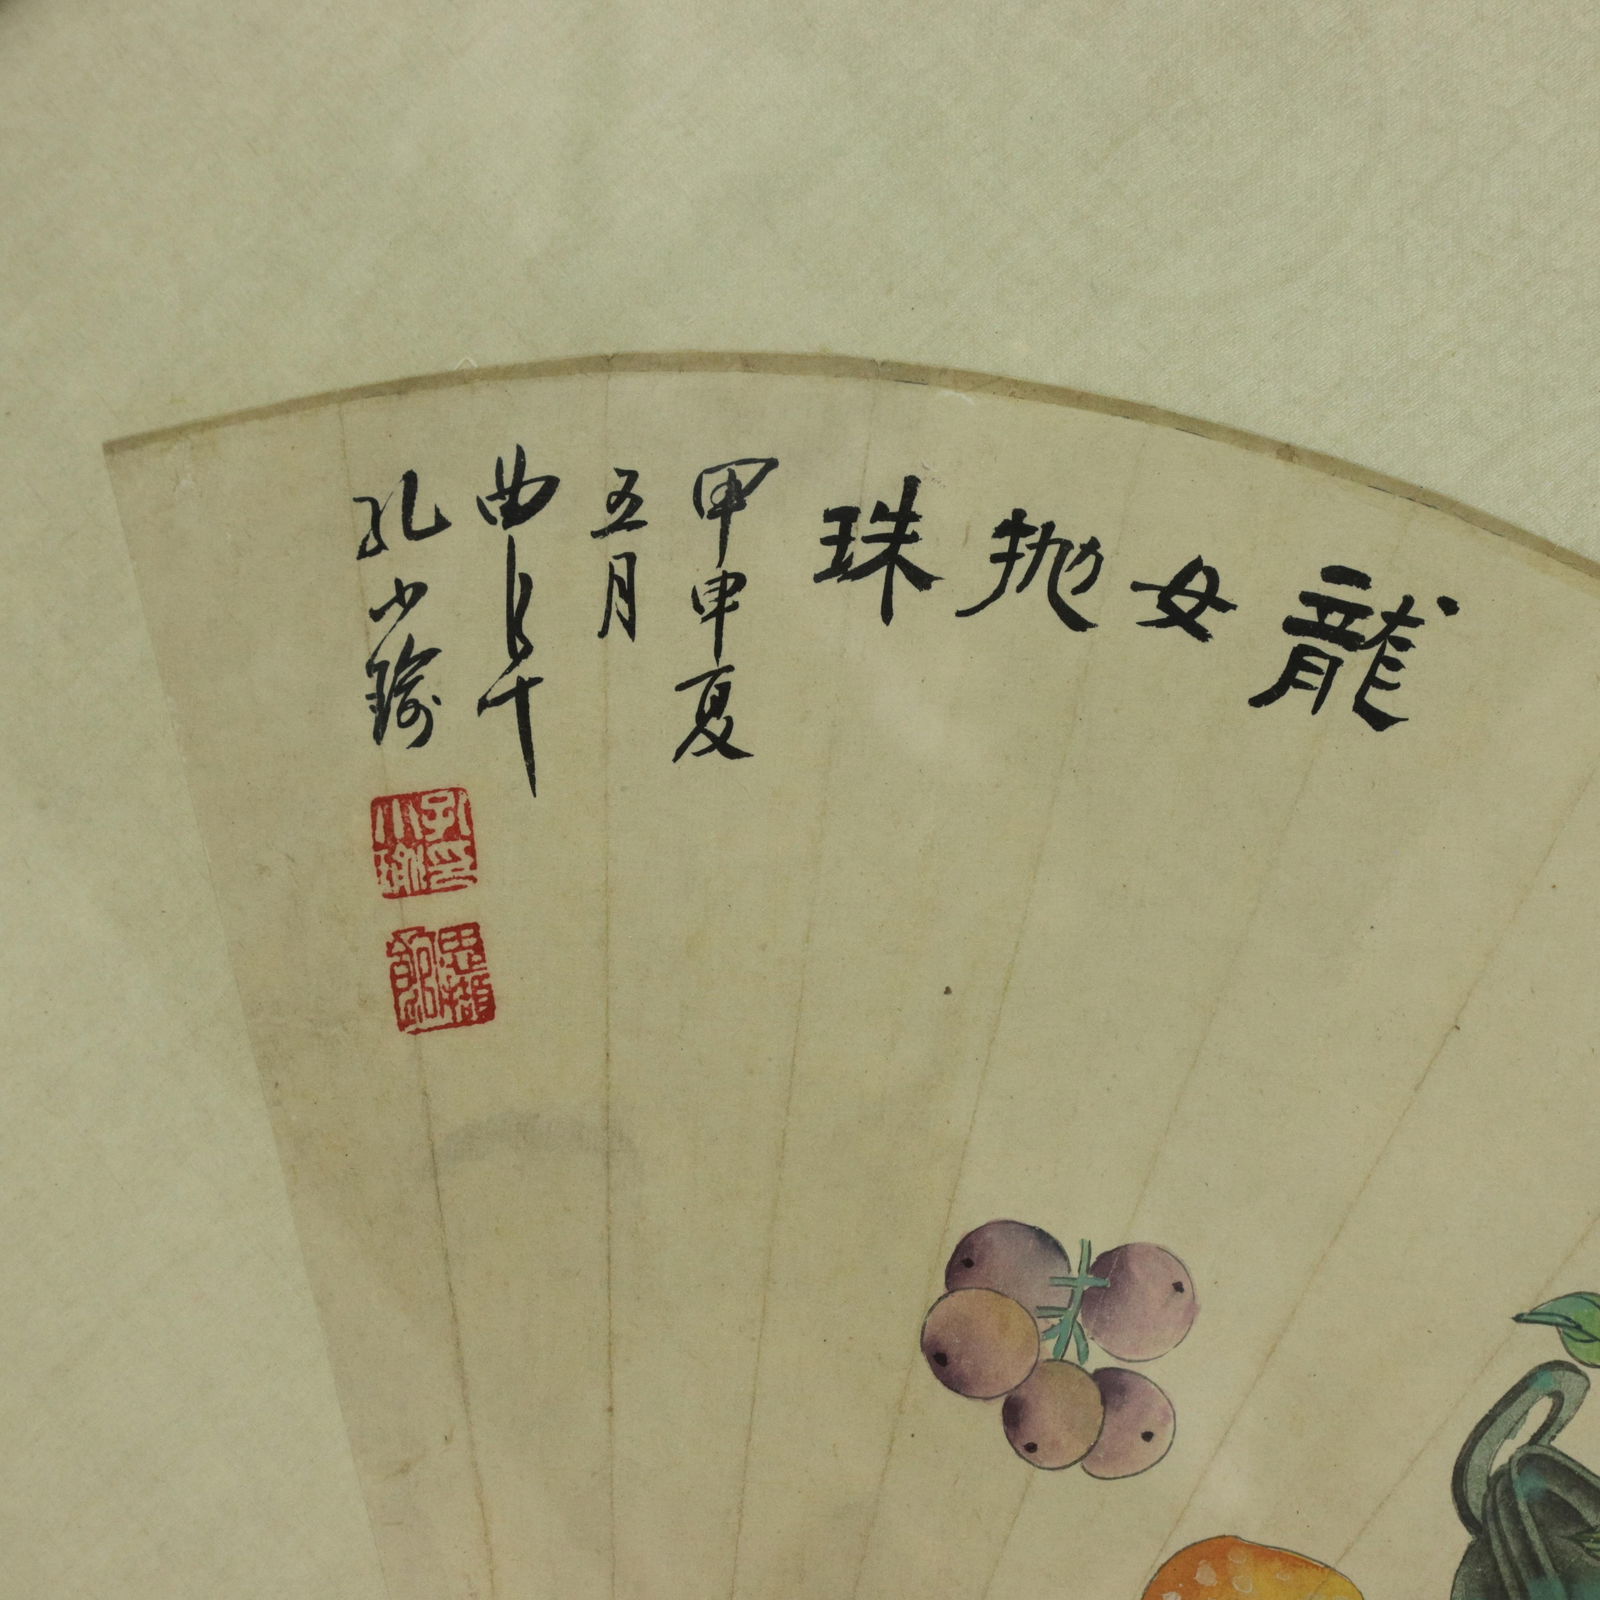 龍女抛珠
甲申夏
五月
曲阜
孔小瑜
孔印
小瑜